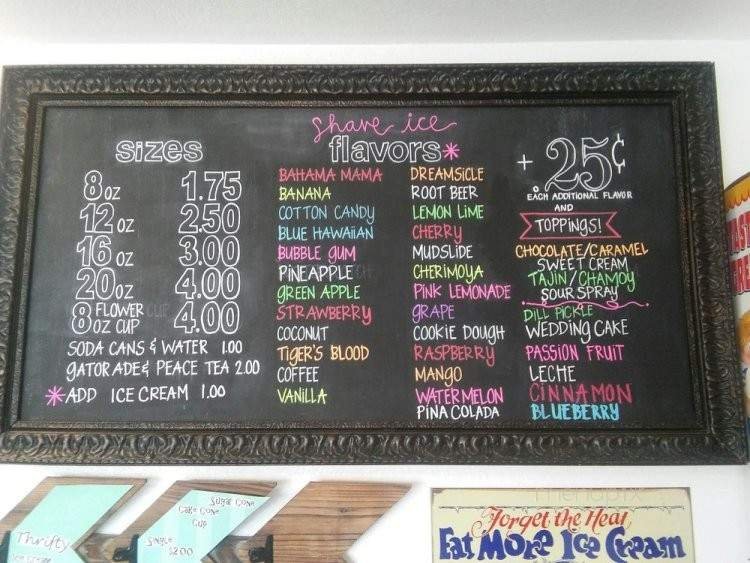 sizes
8oz 1.75
12oz 2.50
16oz 3.00
20oz 4.00
8oz FLOWER CUP 4.00
SODA CANS & WATER 1.00
GATORADE & PEACE TEA 2.00
*ADD ICE CREAM 1.00
shave ice
flavors*
BAHAMA MAMA
BANANA
COTTON CANDY
BLUE HAWAIIAN
BUBBLE GUM
PINEAPPLE
GREEN APPLE
STRAWBERRY
COCONUT
TIGER'S BLOOD
COFFEE
VANILLA
DREAMSICLE
ROOT BEER
LEMON LIME
CHERRY
MUDSLIDE
CHERIMOYA
PINK LEMONADE
GRAPE
COOKIE DOUGH
RASPBERRY
MANGO
WATERMELON
PINA COLADA
+ 25¢
EACH ADDITIONAL FLAVOR
AND
TOPPINGS!
CHOCOLATE/CARAMEL
SWEET CREAM
TAJIN/CHAMOY
SOUR SPRAY
DILL PICKLE
WEDDING CAKE
PASSION FRUIT
LECHE
CINNAMON
BLUEBERRY
Thrifty
SUGAR CONE
CAKE CONE
CUP
SINGLE
$2.00
Forget the Heat,
Eat More Ice Cream